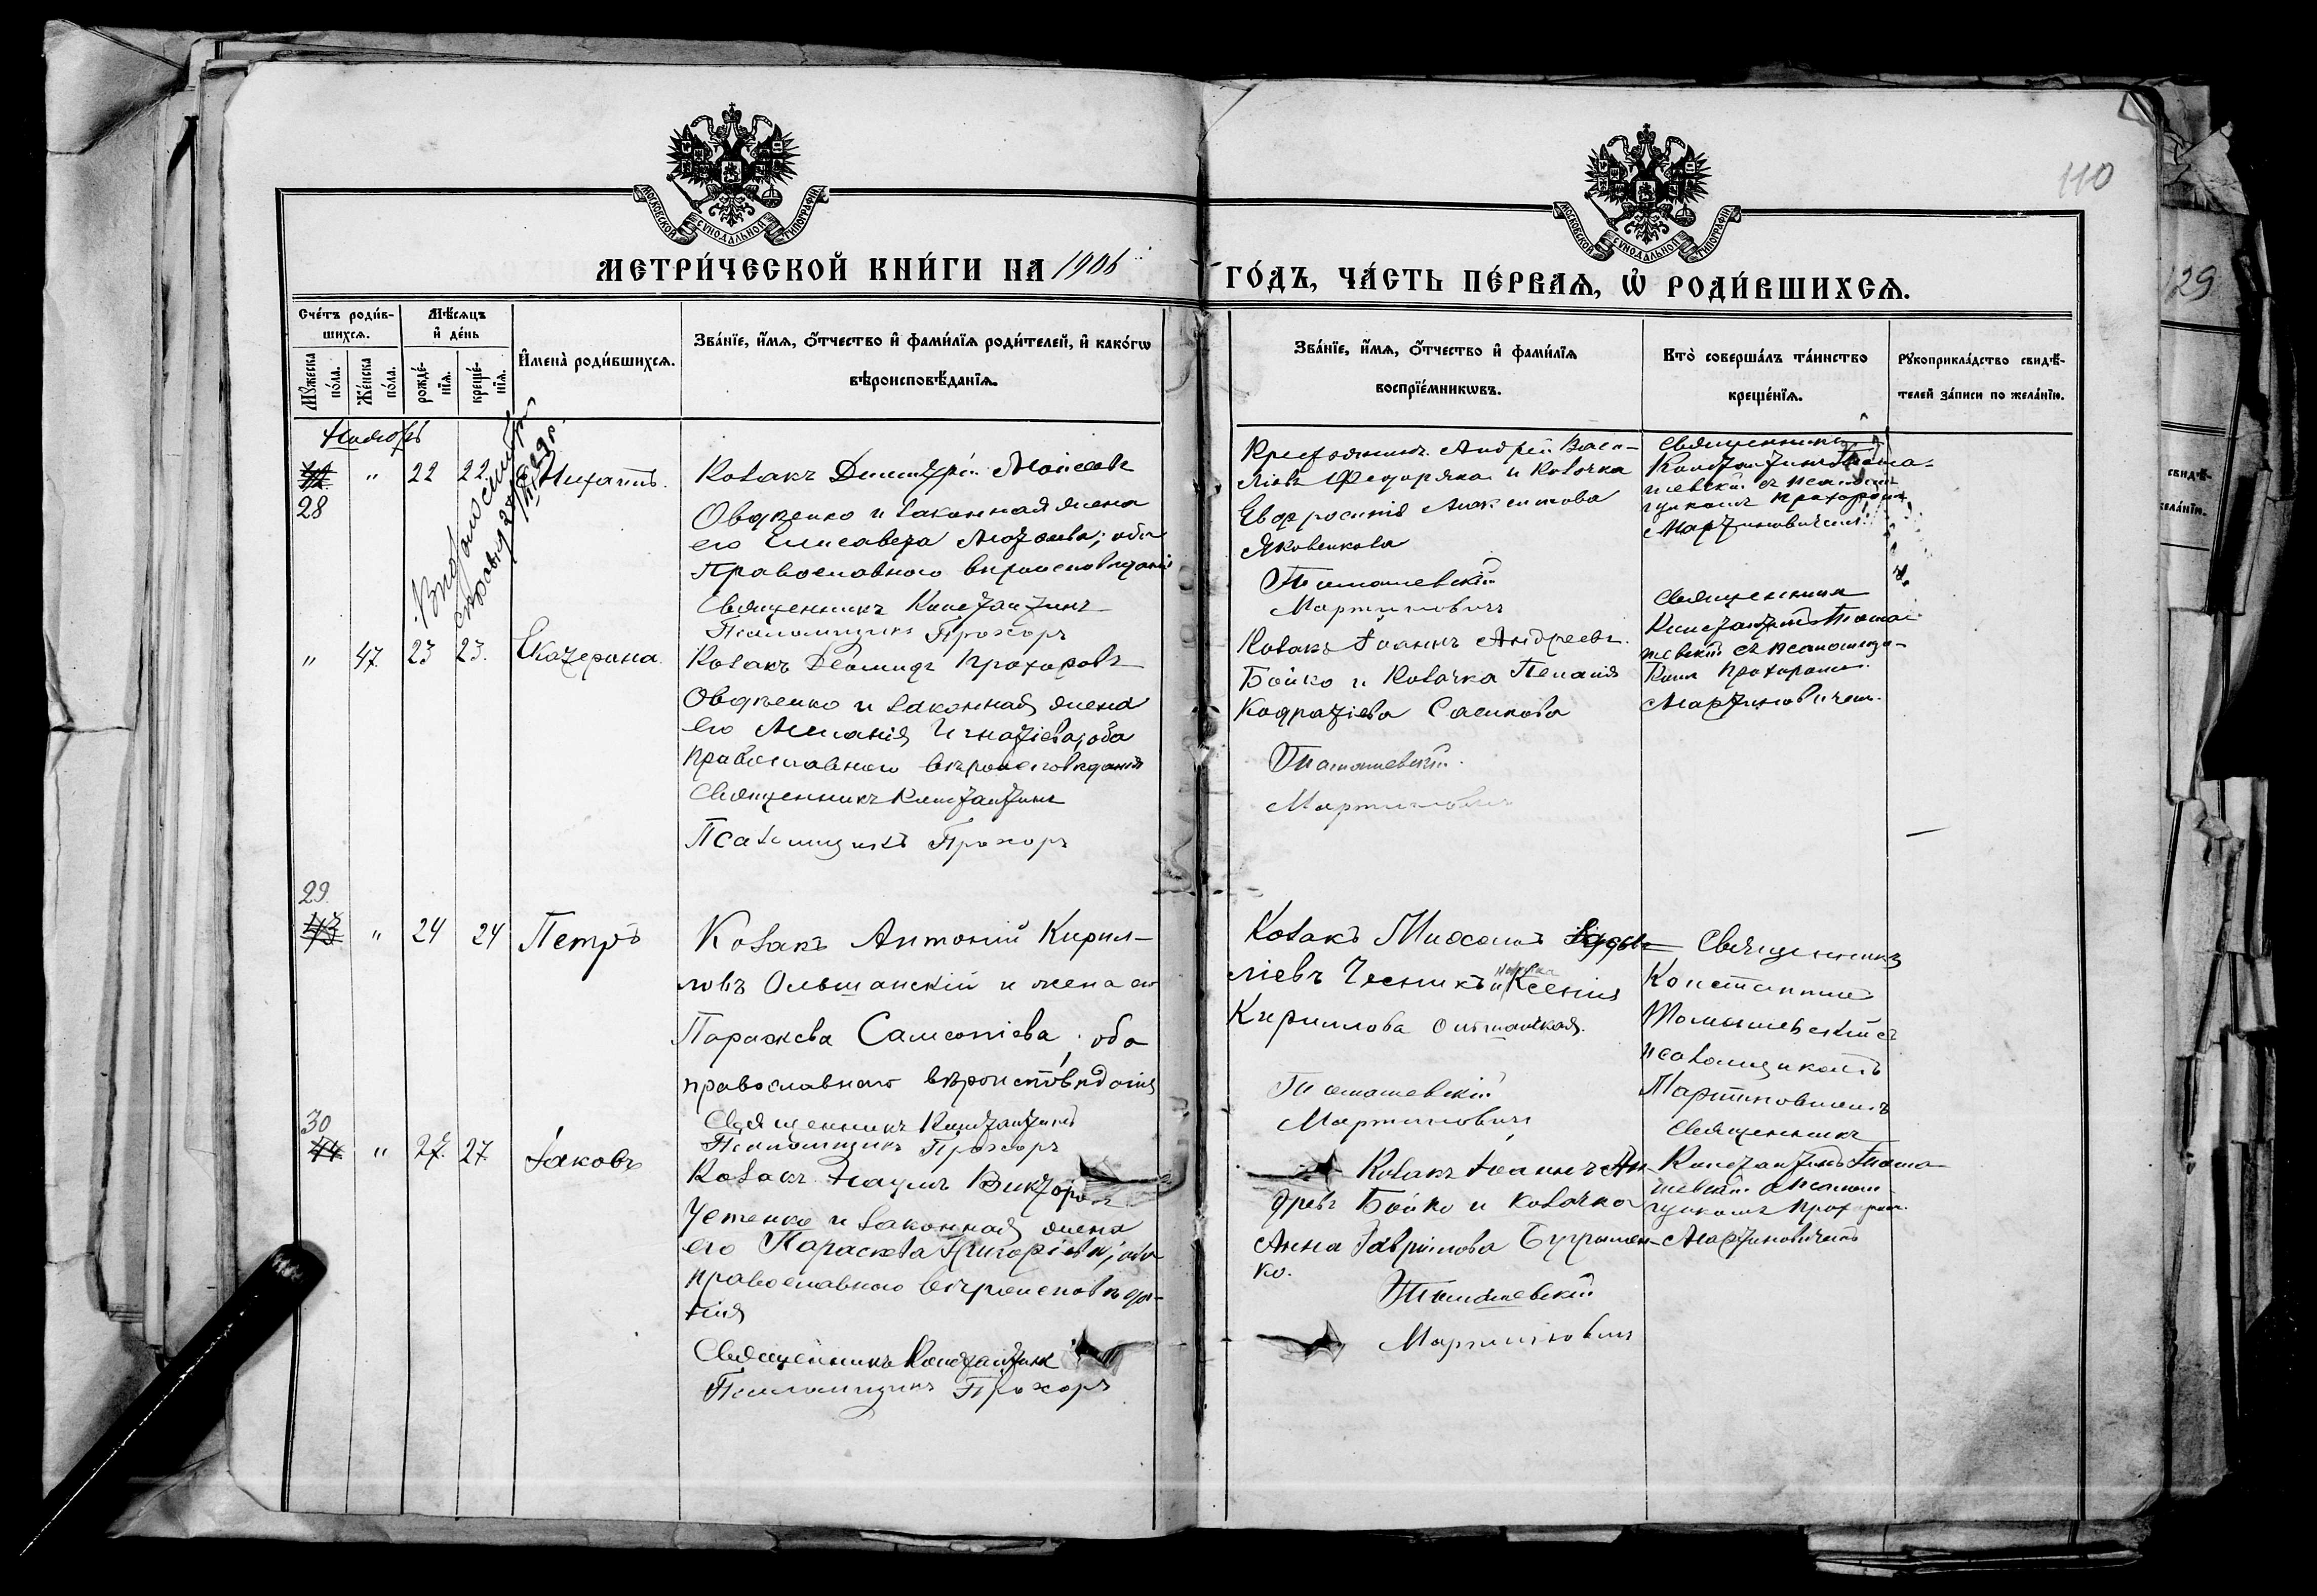 110
МОСКОВСКОЙ СѴНОДАЛЬНОЙ ТИПОГРАФІИ
МОСКОВСКОЙ СѴНОДАЛЬНОЙ ТИПОГРАФІИ
МЕТРИ́ЧЕСКОЙ КНИ́ГИ НА 1906
ГО́ДЪ, ЧА́СТЬ ПЕ́РВАѦ, Ѡ҆ РОДИ́ВШИХСѦ.
Сче́тъ роди́в-
шихсѧ.
Мѣ́сѧцъ
и҆ де́нь
Мꙋ́жеска по́ла.
Же́нска по́ла.
рожде́-
нїѧ.
креще́-
нїѧ.
И҆мена̀ роди́вшихсѧ.
Зва́нїе, и҆́мѧ, ѻ҆́тчество и҆ фами́лїѧ роди́телей, и҆ како́гѡ
вѣроисповѣ́данїѧ.
Зва́нїе, и҆́мѧ, ѻ҆́тчество и҆ фами́лїѧ
воспрїе́мникѡвъ.
Кто̀ соверша́лъ та́инство
креще́нїѧ.
Рꙋкоприкла́дство свидѣ́-
телей за́писи по жела́нїю.
Ноябрь
42 " 22 22. Михаилъ.
28
Козакъ Димитрій Моисеевъ
Овдѣенко и законная жена
его Елисавета Антоніева; оба
Православнаго вѣроисповѣданія
Священникъ Константинъ
Псаломщикъ Прохоръ
Крестьянинъ Андрей Васи-
ліевъ Федоряка и козачка
Евфросинія
Яковенкова
Томашевскій
Мартиновичъ
Священникъ
Константинъ Тома-
шевскій съ псалом-
щикомъ Прохоромъ
Мартиновичемъ.
" 47. 23 23. Екатерина.
Козакъ Діомидъ Прохоровъ
Овдѣенко и законная жена
его Меланія Игнатіева; оба
православнаго вѣроисповѣданія
Священникъ Константинъ
Псаломщикъ Прохоръ
Козакъ Іоаннъ Андреевъ
Бойко и Козачка Пелагія
Кодратіева
Томашевскій.
Мартиновичъ
Священникъ
Константинъ Тома-
шевскій съ псаломщи-
комъ Прохоромъ
Мартиновичемъ.
29.
43 " 24 24 Петръ
Козакъ Антоній Кирил-
ловъ Ольшанскій и жена его
Параскева Самсоніева; оба
православнаго вѣроисповѣданія
Священникъ Константинъ
Псаломщикъ Прохоръ
Козакъ Михаилъ
ліевъ Чесникъ и Ксенія
Кириллова Ольшанская.
Томашевскій
Мартиновичъ
Священникъ
Константинъ
Томашевскій съ
псаломщикомъ
Мартиновичемъ
30
44 " 27. 27 Іаковъ
Козакъ Наумъ Викторовъ
Устенко и законная жена
его Параскева Григоріева; оба
православнаго вѣроисповѣда-
нія
Священникъ Константинъ
Псаломщикъ Прохоръ
Козакъ Іоаннъ Ан-
дреевъ Бойко и козачка
Анна Гавриілова
ко.
Томашевскій
Мартиновичъ
Священникъ
Константинъ Тома-
шевскій съ псалом-
щикомъ Прохоромъ
Мартиновичемъ
129
свидѣ́-
жела́нїю.